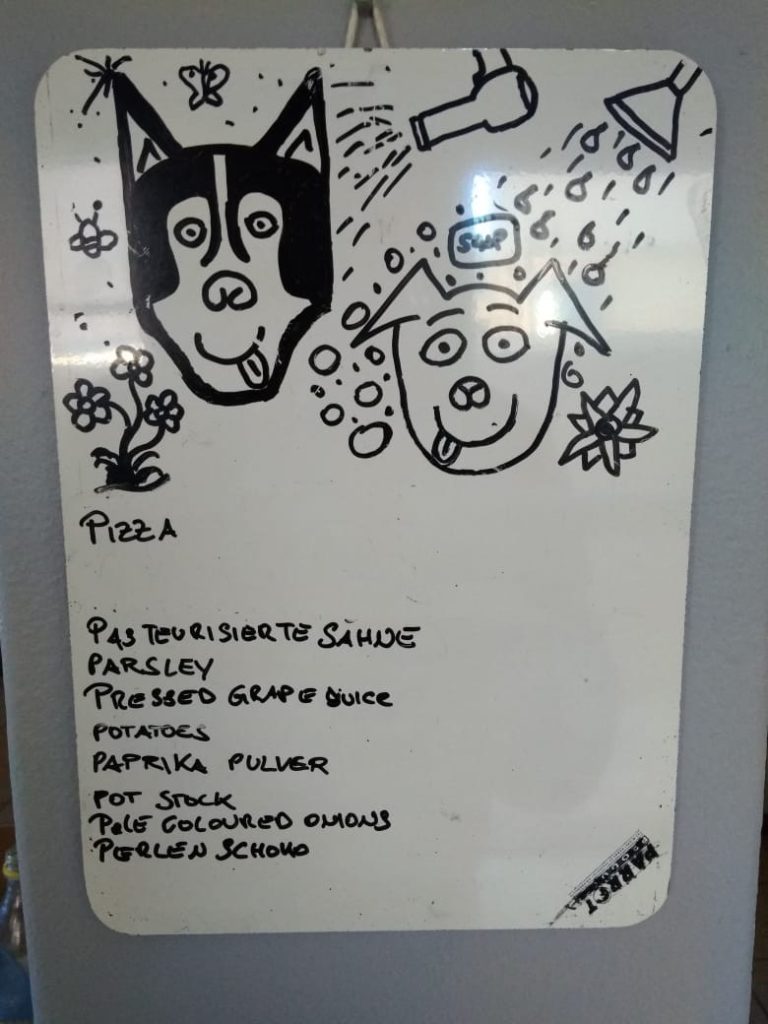 SOAP
PIZZA
PASTEURISIERTE SAHNE
PARSLEY
PRESSED GRAPE JUICE
POTATOES
PAPRIKA PULVER
POT STOCK
PALE COLOURED ONIONS
PERLEN SCHOKO
PARROT